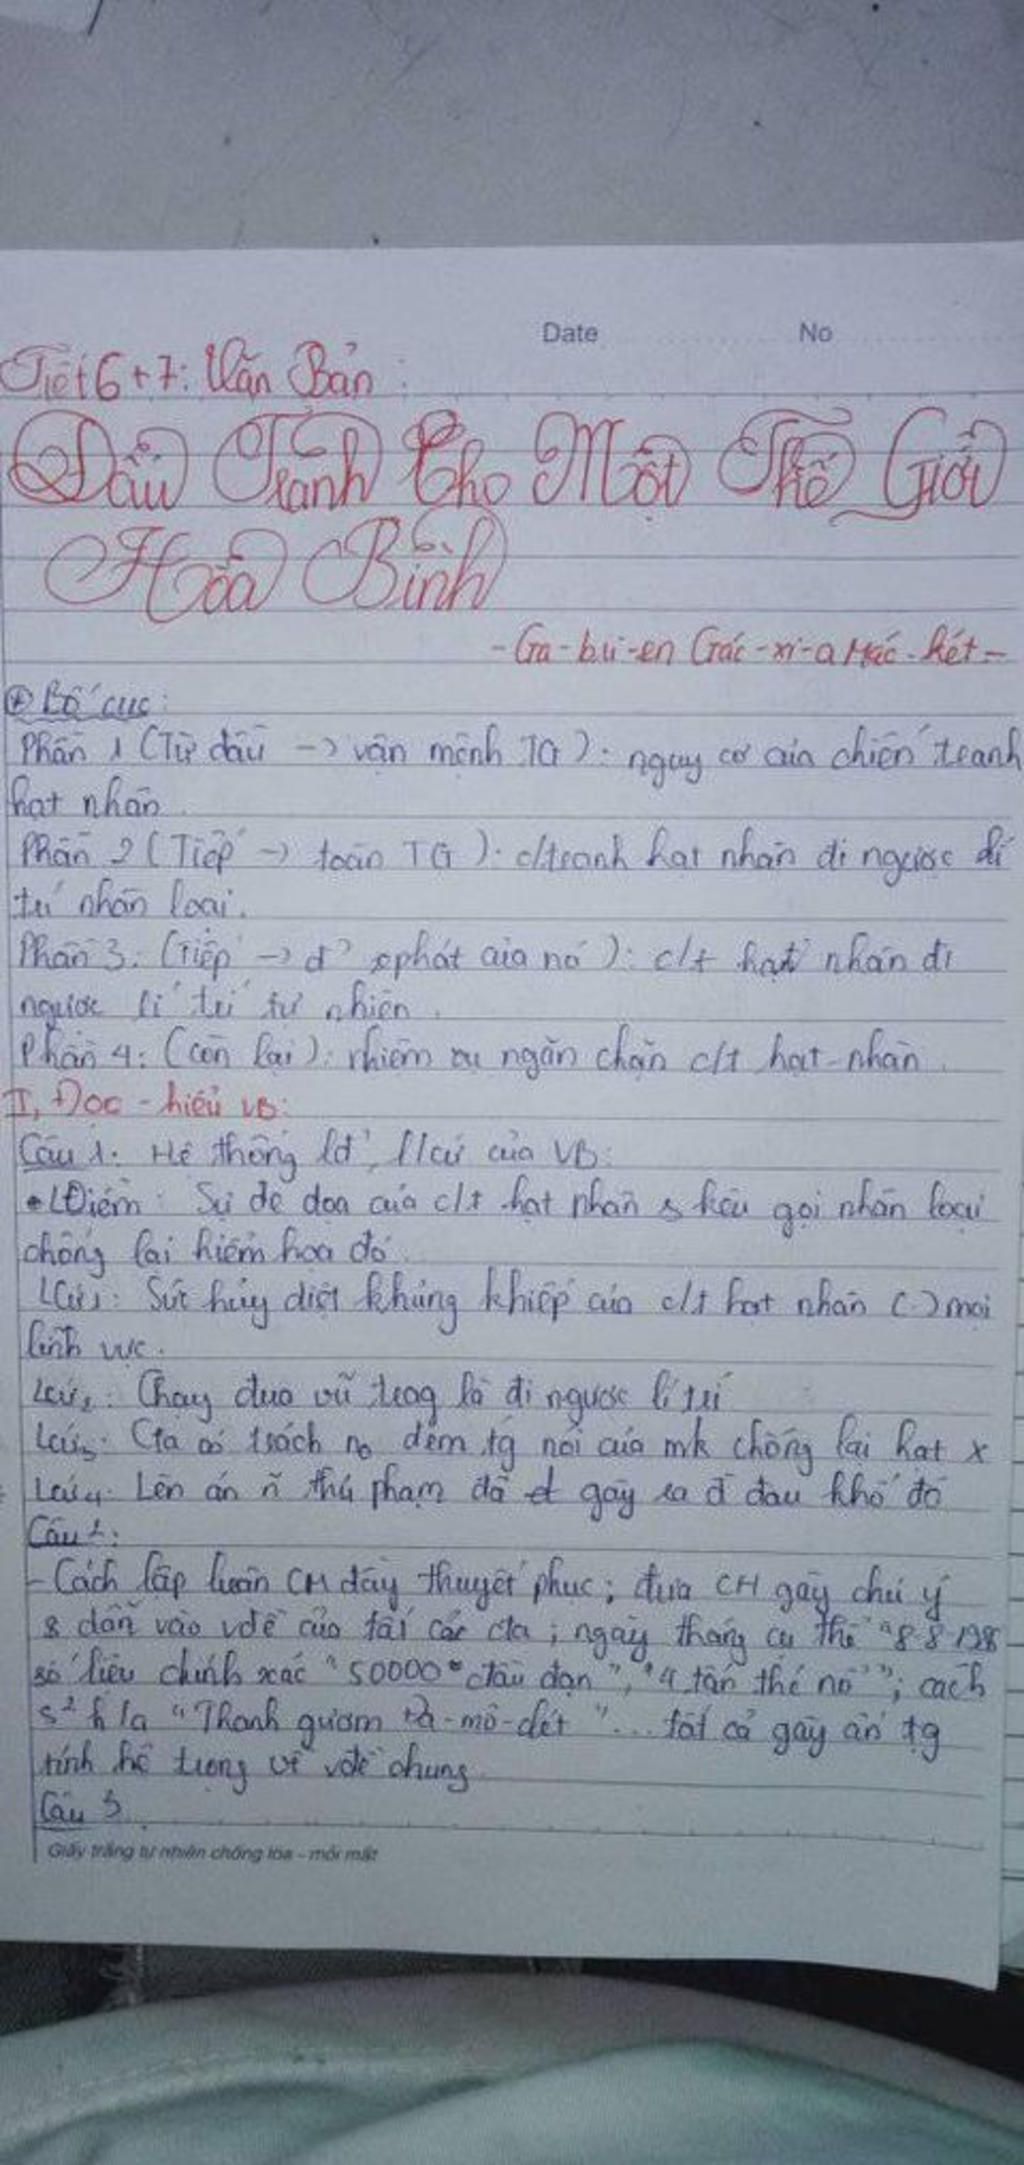 Date No
Tiết 6+7: Văn Bản:
Đấu Tranh Cho Một Thế Giới
Hòa Bình
- Ga-bri-en Gác-xi-a Mác-két -
Bố cục:
Phần 1 (Từ đầu -> vận mệnh TG): nguy cơ của chiến tranh
hạt nhân.
Phần 2 (Tiếp -> toàn TG): c/tranh hạt nhân đi ngược lí
trí nhân loại.
Phần 3: (Tiếp -> đ' xphát của nó): c/t hạt nhân đi
ngược lí trí tự nhiên.
Phần 4: (còn lại): nhiệm vụ ngăn chặn c/t hạt nhân.
II, Đọc - hiểu VB:
Câu 1: Hệ thống lđ', l/cứ của VB:
• LĐiểm: Sự đe dọa của c/t hạt nhân & kêu gọi nhân loại
chống lại hiểm họa đó.
LCứ1: Sức hủy diệt khủng khiếp của c/t hạt nhân (.) mọi
lĩnh vực.
Lcứ2: Chạy đua vũ trag là đi ngược lí trí
Lcứ3: Cta có trách no đem tg nói của mk chống lại hạt x
Lcứ4: Lên án ~ thủ phạm đã gây ra đ đau khổ đó
Câu 2:
- Cách lập luận CM đầy thuyết phục; đưa CH gây chú ý
& dẫn vào vđề của tất các cta; ngày tháng cụ thể "8-8-198
số liệu chính xác "50000 đầu đạn", "4 tấn thế nổ"; cách
s² h lạ "Thanh gươm Đa-mô-clét"... tất cả gây ấn tg
tính hệ trọng về vđề chung
Câu 3
Giấy trắng tự nhiên chống lóa - mỏi mắt